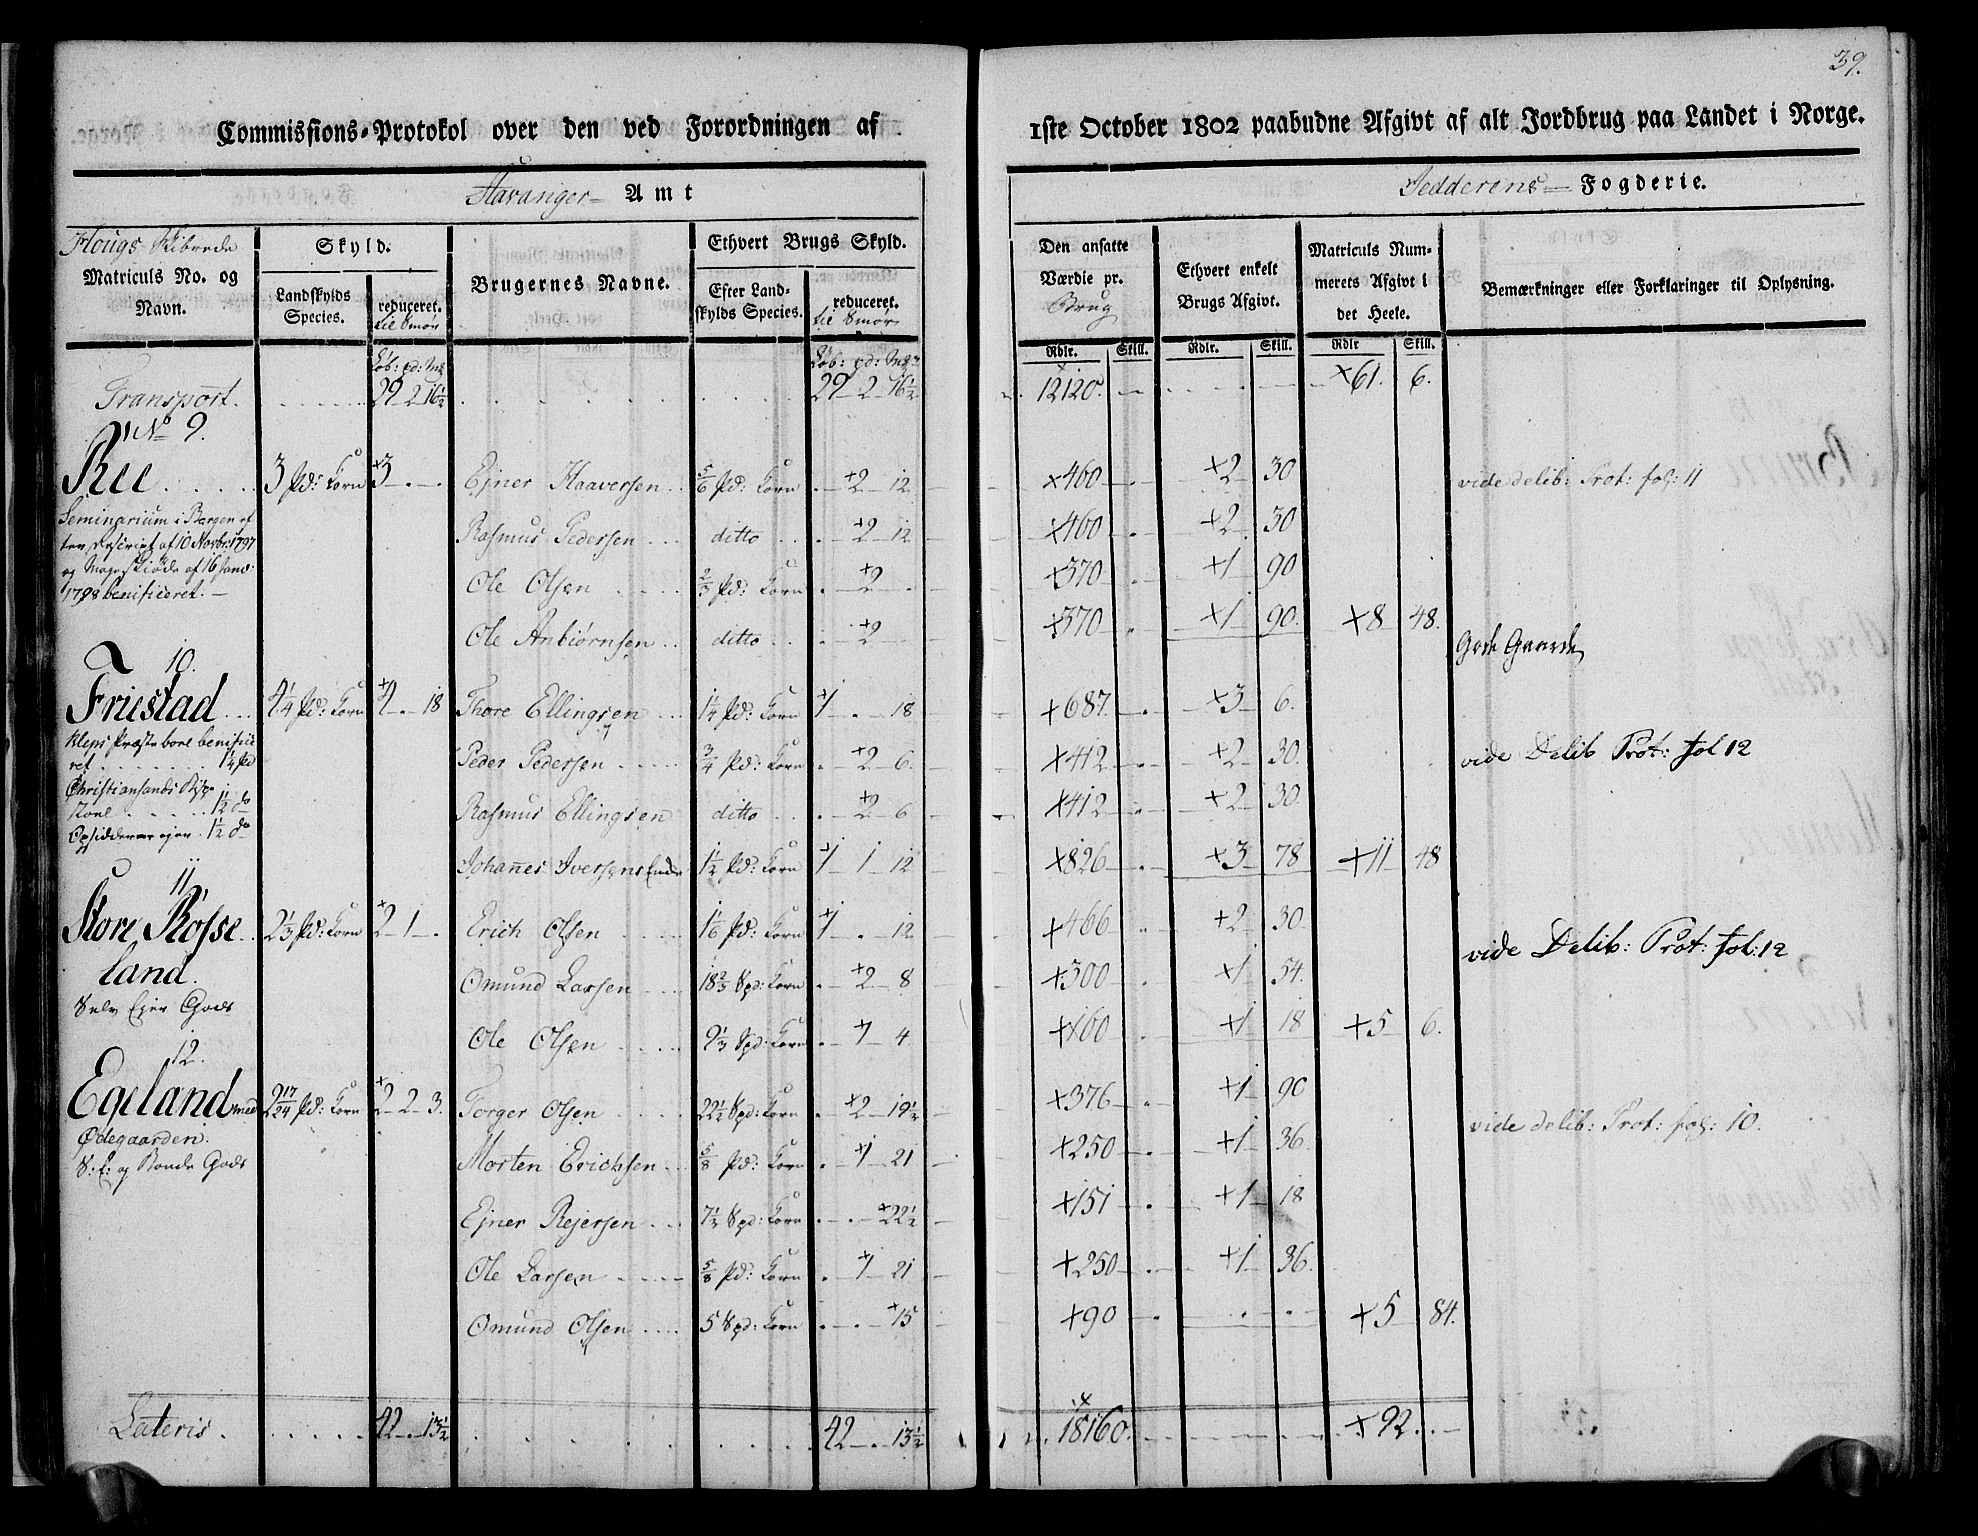 39.
Commissions-Protokol over den ved Forordningen af 1ste October 1802 paabudne Afgivt af alt Jordbrug paa Landet i Norge.
Stavanger Amt Jedderens Fogderie.
Hougs Skibrede
Matriculs No. og Navn.
Skyld.
Landskylds Species.
reduceret. til Smør
Brugernes Navne.
Ethvert Brugs Skyld.
Efter Landskylds Species.
reduceret. til Smør
Den ansatte Værdie pr. Brug
Ethvert enkelt Brugs Afgivt.
Matriculs Nummerets Afgivt i det Heele.
Bemærkninger eller Forklaringer til Oplysning.
Løb: pd: Mk Løb: pd: Mk Rdlr. Skill. Rdlr. Skill. Rdlr Skill.
Transport. 29 2 16½ 29 2 16½ 12120. +61. 6.
No 9.
Ree 3 Pd: Korn +3 Ejner Haaversen 5/6 Pd: Korn +2 12 +460 +2 30 vide delib: Prot: fol: 11
Seminarium i Bergen ef
ter Rescript af 10 Novbr: 1797
og Mageskiøde af 16 Janu:
1798 benificeret.
Rasmus Pedersen ditto +2 12 +460 +2 30
Ole Olsen 2/3 Pd: Korn +2 +370 +1 90
Ole Anbiørnsen ditto +2 +370 +1 90. +8 48.
Gode Gaarde
10.
Friestad 4¼ Pd: Korn +4 18 Thore Ellingsen 1¼ Pd: Korn +1 18 +687. +3 6.
Kleps Præstebord benifice
ret 1¼ Pd
Christiansands Bisp
stoel 1½ do
Opsidderne ejer 1½ do
Peder Pedersen ¾ Pd: Korn +2 6. +412 +2 30. vide Delib Prot: fol 12
Rasmus Ellingsen ditto +2 6 +412 +2 30.
Johannes Iversens Enke 1½ Pd: Korn +1 1 12 +826 +3 78 +11 48
11
Store Røsse
land.
2⅓ Pd: Korn +2 1 Erich Olsen 1⅙ Pd: Korn +1 12 +466 +2 30. vide Delib: Prot: fol: 12
Selv Ejer Gods
Omund Larsen 18⅔ Spd: Korn +2 8 +300 +1 54.
Ole Olsen 9⅓ Spd: Korn +1 4 +160 +1 18 +5 6.
12.
Egeland med 2 17/24 Pd: Korn +2 2 3. Torger Olsen 22½ Spd: Korn +2 19½ +376 +1 90 vide delib: Prot: fol: 10.
Ødegaarden.
S: E: og Bonde Gods
Morten Erichsen ⅝ Pd: Korn +1 21 +250 +1 36.
Ejner Rejersen 7½ Spd: Korn +22½ +151 +1 18
Ole Larsen ⅝ Pd: Korn +1 21 +250 +1 36.
Omund Olsen 5 Spd: Korn +15 +90 +5 84.
Lateris. 42 13½ 42 13½ 18160. +92.